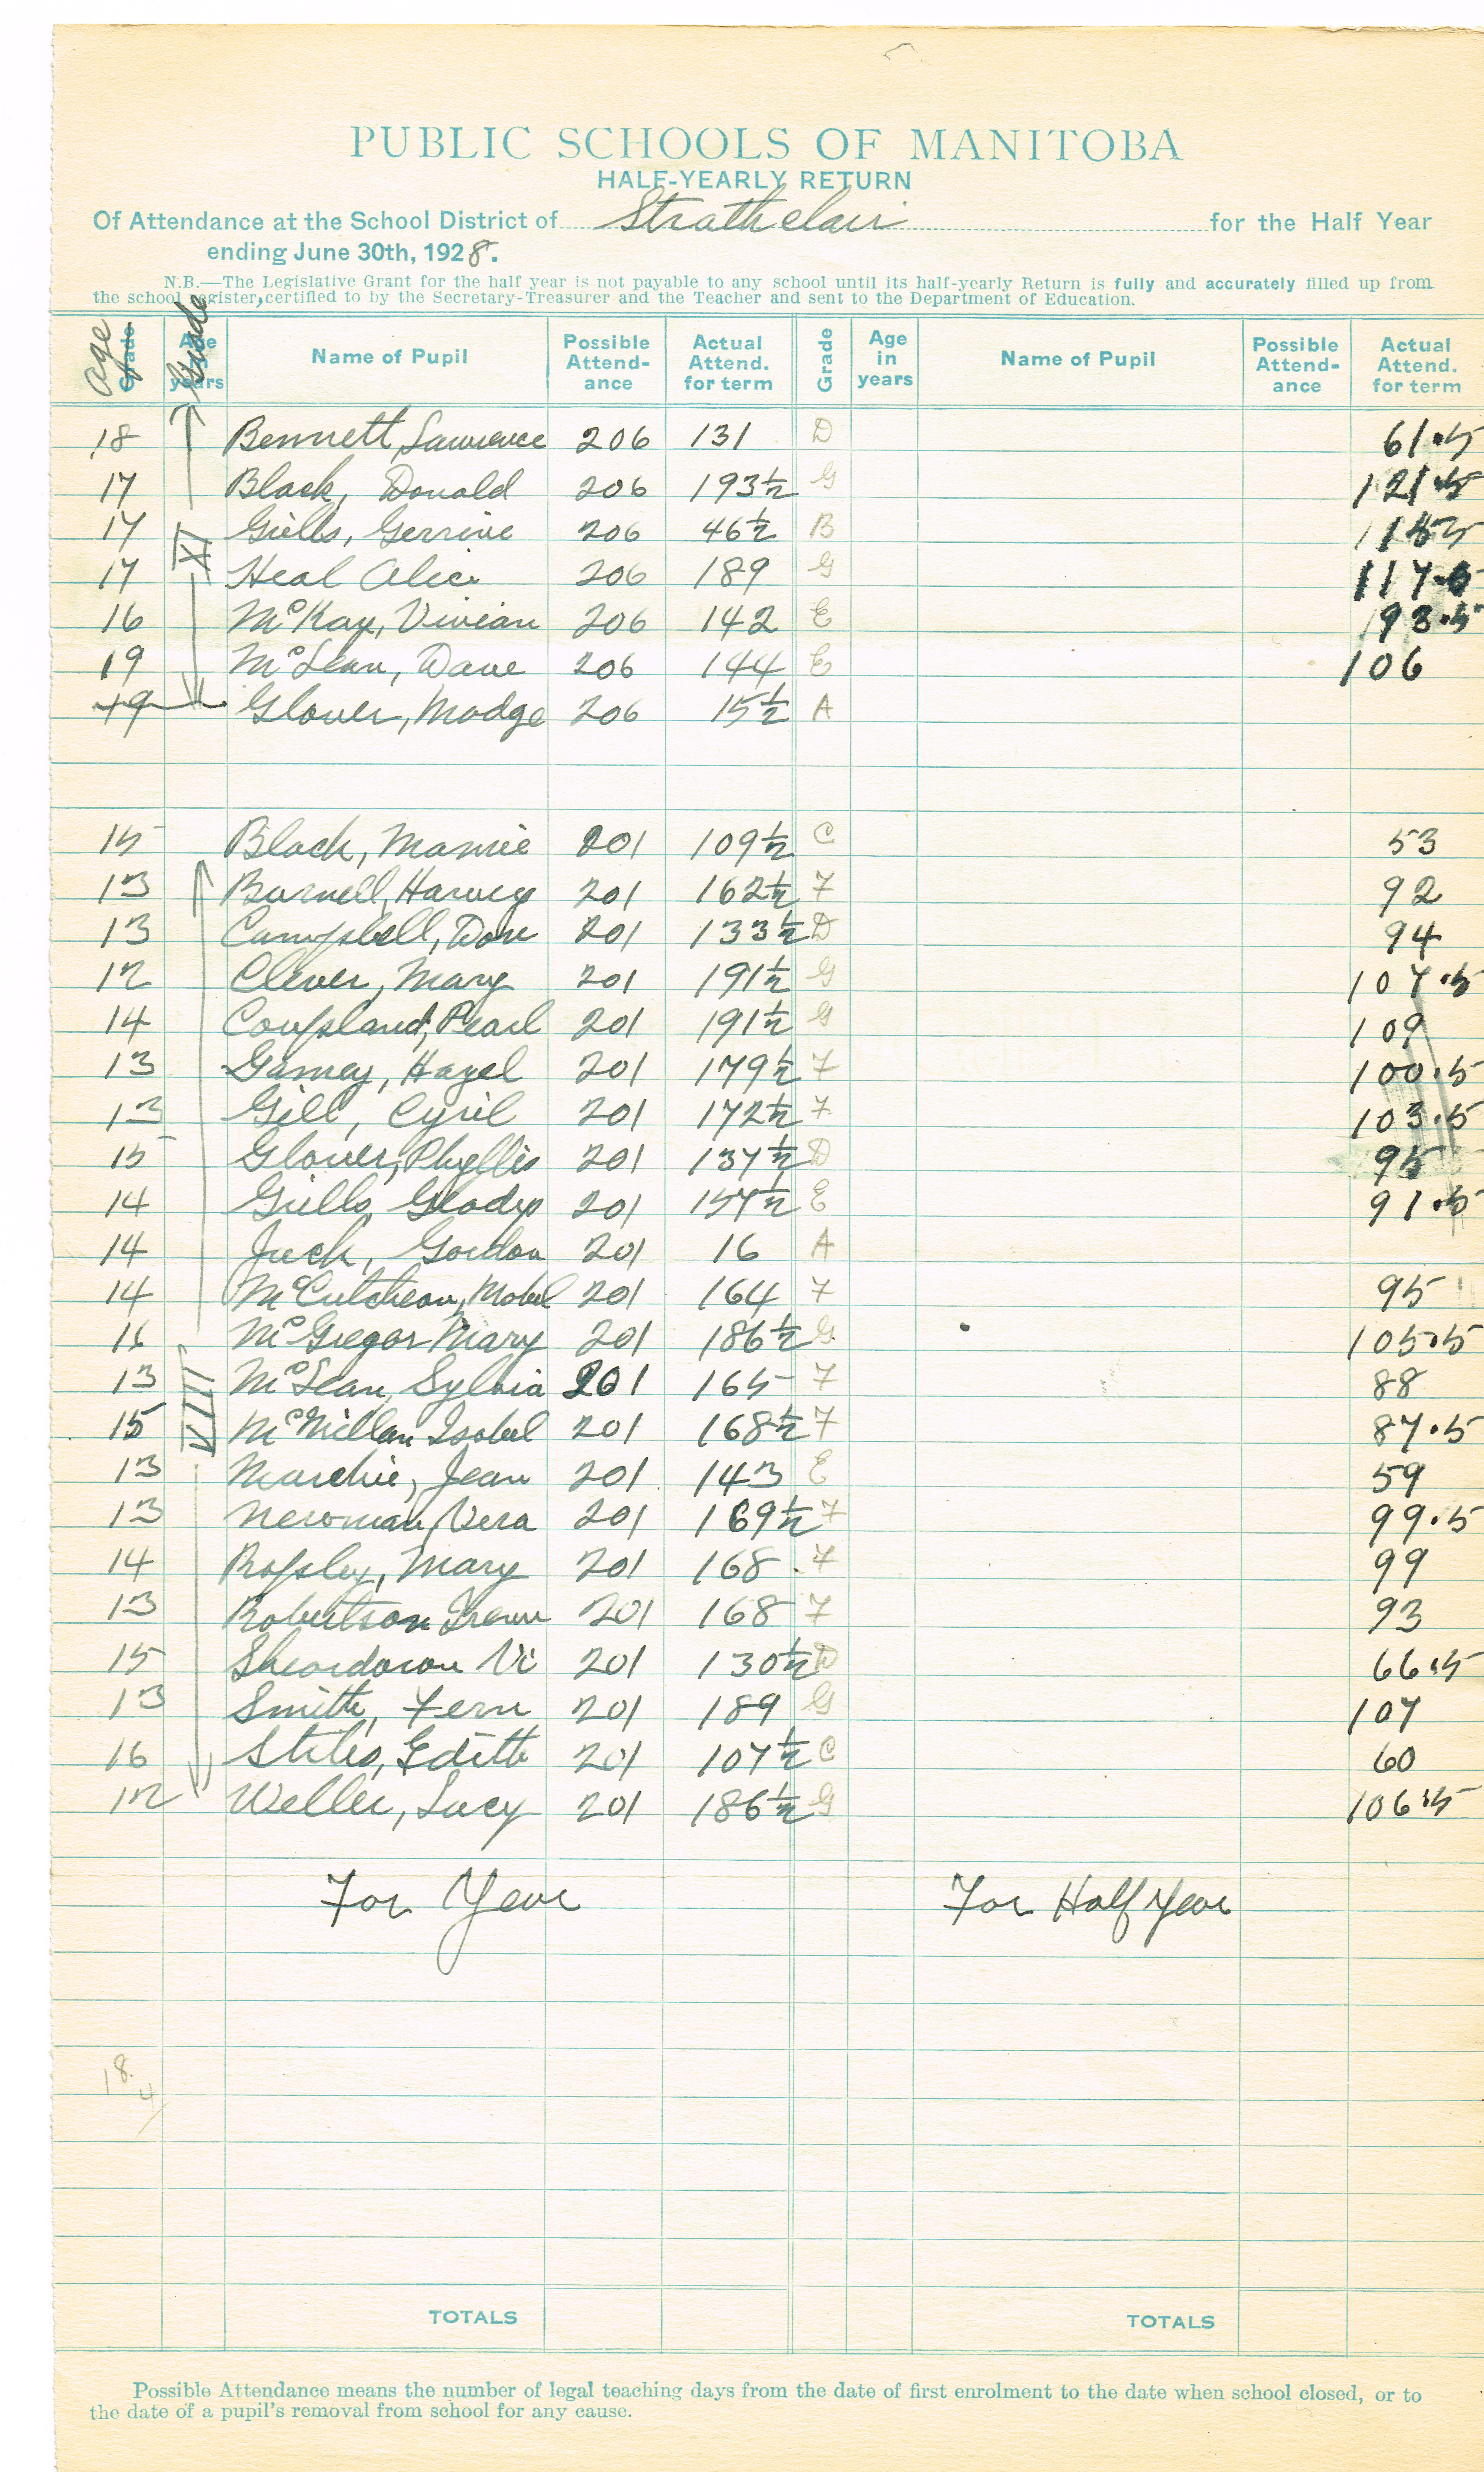 PUBLIC SCHOOLS OF MANITOBA
HALF-YEARLY RETURN
Of Attendance at the School District of Strathclair for the Half Year
ending June 30th, 1928.
N.B.—The Legislative Grant for the half year is not payable to any school until its half-yearly Return is fully and accurately filled up from
the school register, certified to by the Secretary-Treasurer and the Teacher and sent to the Department of Education.
Age Grade Name of Pupil Possible Attend-ance Actual Attend. for term Grade Age in years Name of Pupil Possible Attend-ance Actual Attend. for term
18 Bennett, Lawrence 206 131 D 61.5
17 Black, Donald 206 193½ G 121.5
17 XI Grills, Gerrine 206 46½ B
17 Heal Alice 206 189 G
16 McKay, Vivian 206 142 E 93.5
19 McLean, Dave 206 144 E 106
19 Glover, Madge 206 15½ A
15 Black, Mamie 201 109½ C 53
13 Burnell, Harvey 201 162½ F 92
13 Campbell, Don 201 133½ D 94
12 Clever, Mary 201 191½ G 107.5
14 Coupland, Pearl 201 191½ G 109
13 Gamey, Hazel 201 179½ F 100.5
13 Gill, Cyril 201 172½ F 103.5
15 Glover, Phyllis 201 137½ D 95
14 Grills, Gladys 201 157½ E 91.5
14 Jack, Gordon 201 16 A
14 McCutcheon, Mabel 201 164 F 95
16 McGregor Mary 201 186½ G 105.5
13 VIII McLean, Sylvia 201 165 F 88
15 McMillan Isobel 201 168½ F 87.5
13 Jean 201 143 E 59
13 Newman, Vera 201 169½ F 99.5
14 Mary 201 168 F 99
13 Robertson Irene 201 168 F 93
15 Vi 201 130½ D 66.5
13 Smith, Fern 201 189 G 107
16 Stiles, Edith 201 107½ C 60
12 Weller, Lucy 201 186½ G 106.5
For Year For Half Year
18.
4
TOTALS TOTALS
Possible Attendance means the number of legal teaching days from the date of first enrolment to the date when school closed, or to
the date of a pupil's removal from school for any cause.